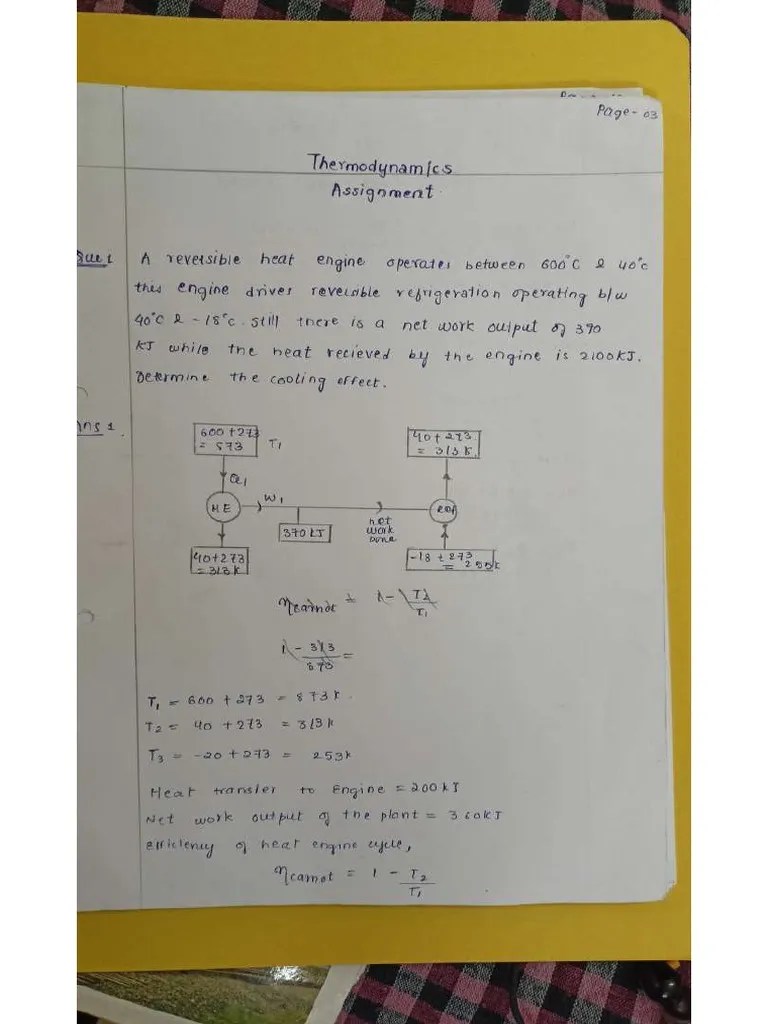 Page-03
Thermodynamics
Assignment
Que 1
A reversible heat engine operates between 600°C & 40°C
this engine drives reversible refrigeration operating b/w
40°C & -18°C. Still there is a net work output of 390
KJ while the heat recieved by the engine is 2100KJ.
Determine the cooling effect.
Ans 1.
600 + 273
= 873
T1
40 + 273
= 313 K.
Q1
HE
W1
370 KJ
net
work
done
40+273
= 313 K
-18 + 273
ηcarnot = 1 - T2/T1
1 - 313/873 =
T1 = 600 + 273 = 873 K.
T2 = 40 + 273 = 313 K
T3 = -20 + 273 = 253 K
Heat transfer to Engine = 200 KJ
Net work output of the plant = 360 KJ
efficiency of heat engine cycle,
ηcarnot = 1 - T2/T1